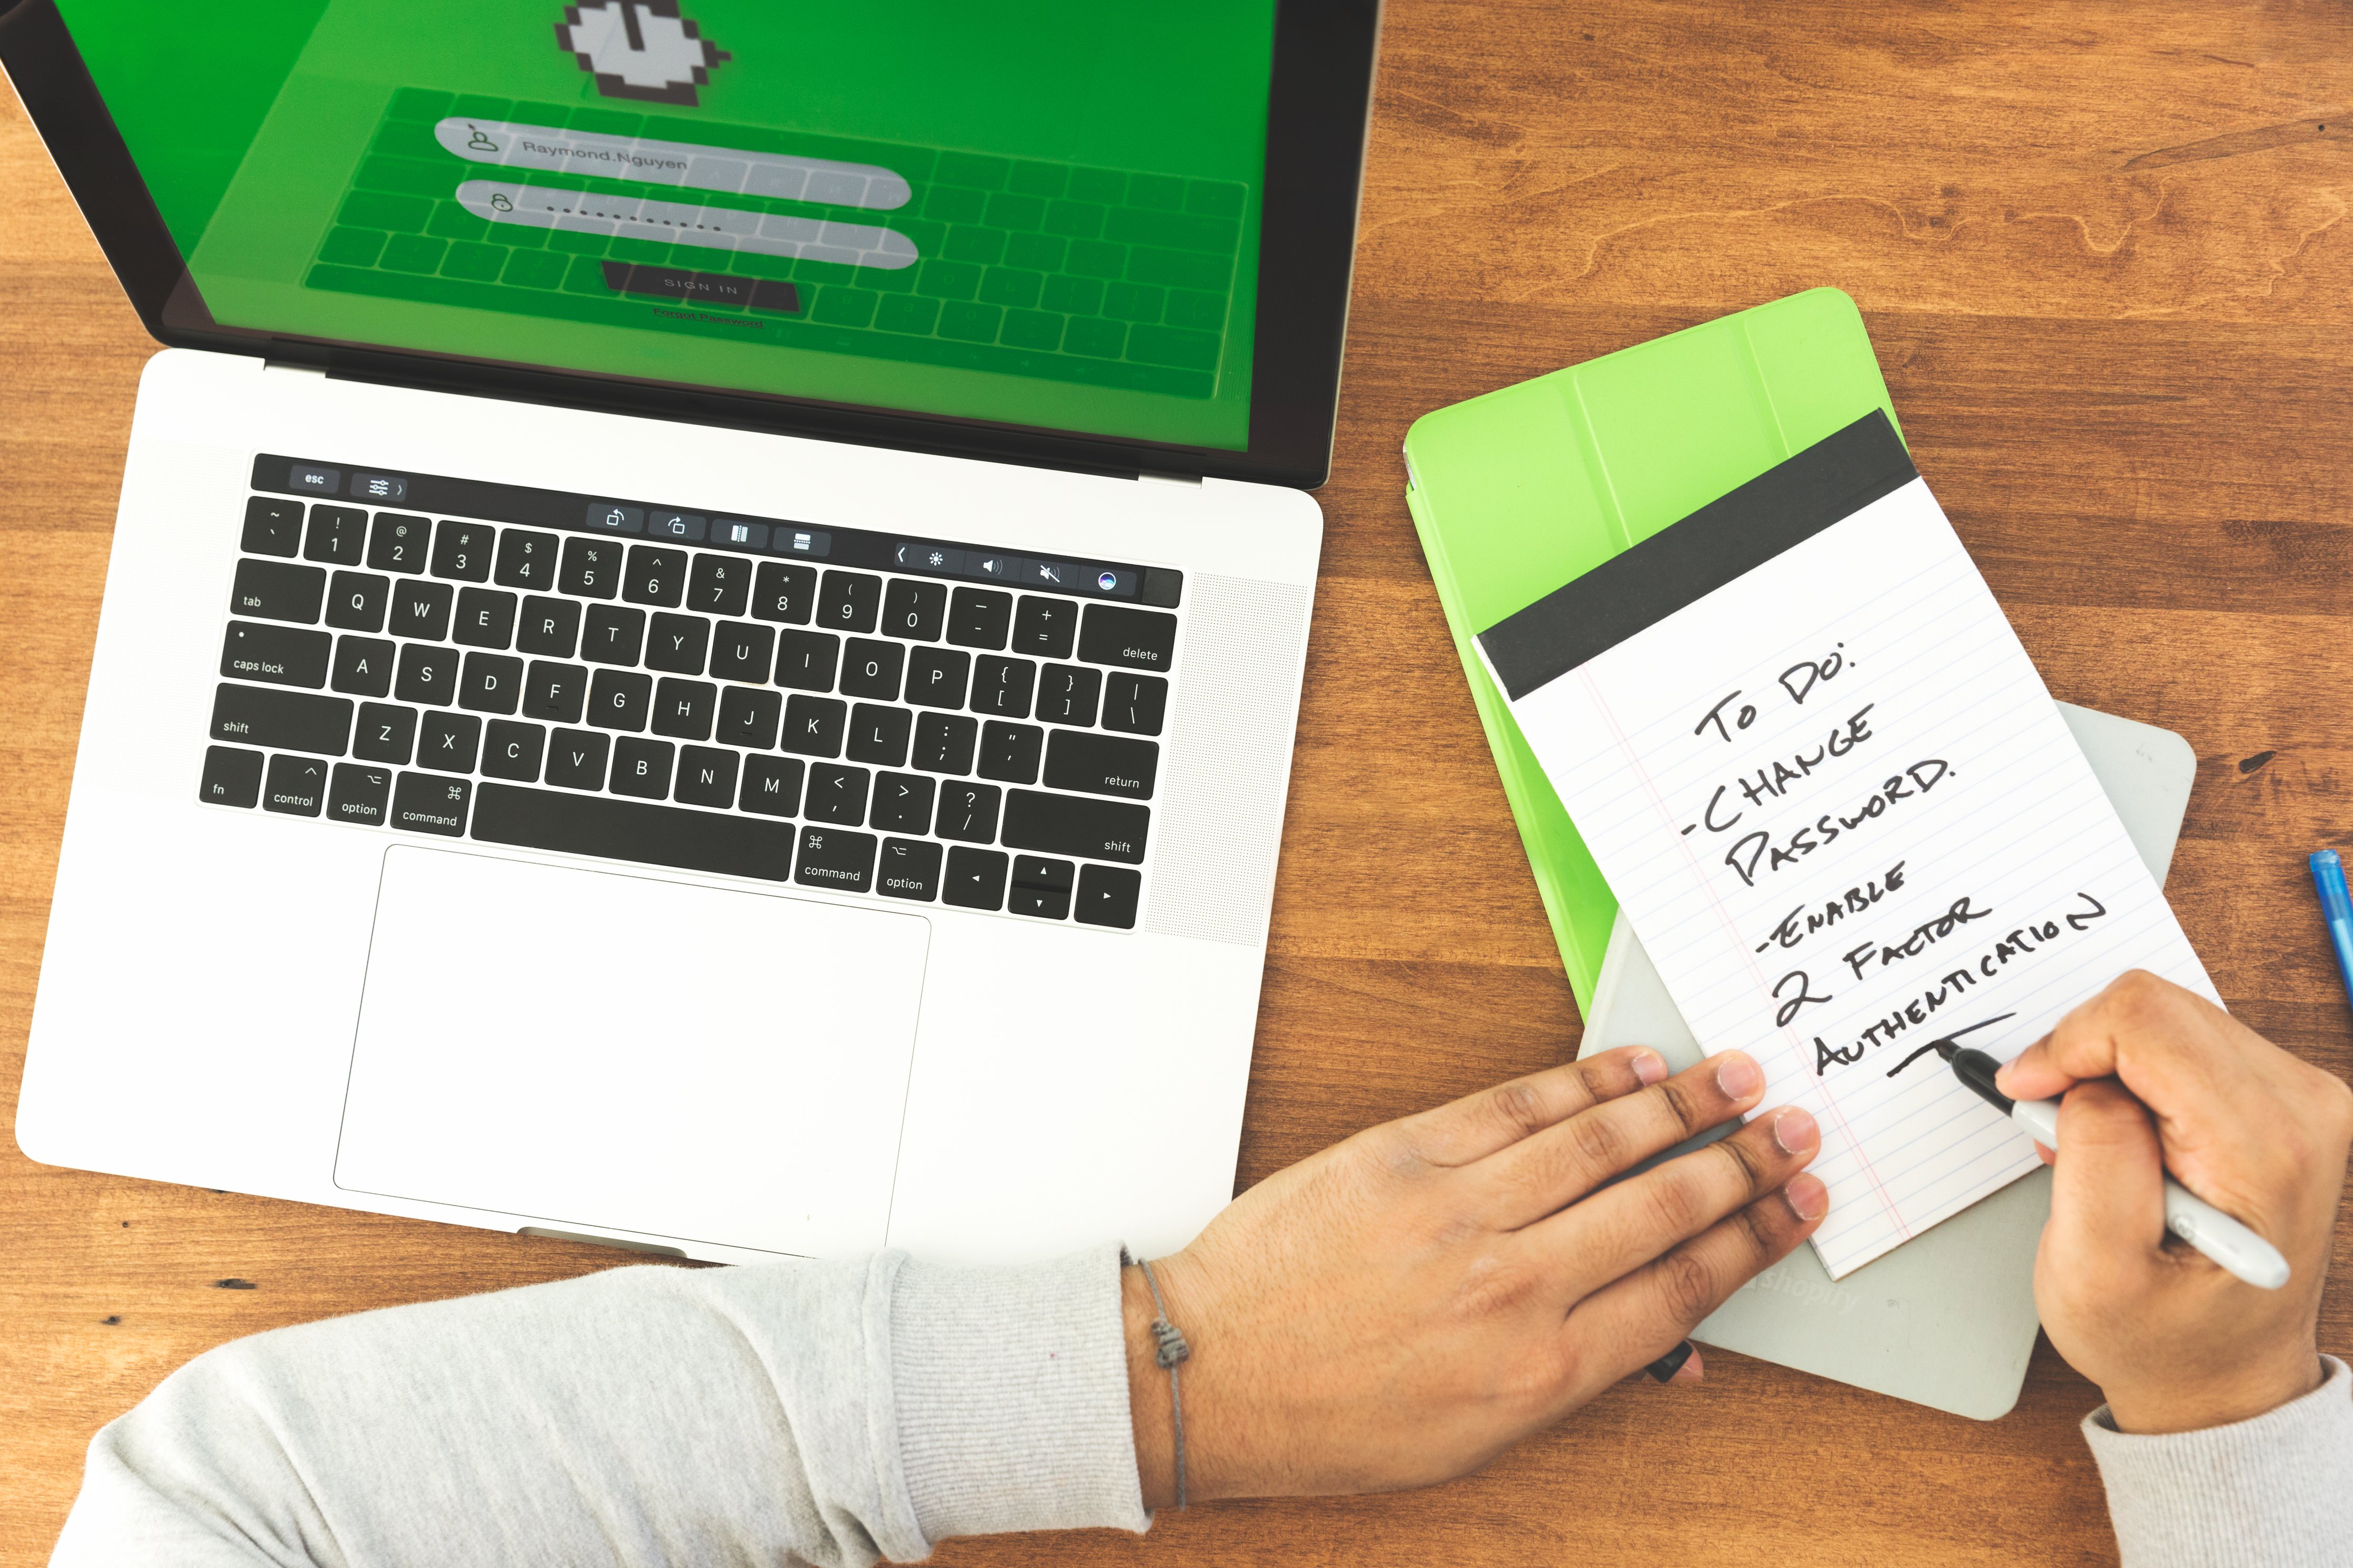 Raymond.Nguyen
SIGN IN
Forgot Password
esc
~ ! @ # $ % ^ & * ( ) _ +
` 1 2 3 4 5 6 7 8 9 0 - = delete
tab Q W E R T Y U I O P { [ } ] | \
caps lock A S D F G H J K L : ; " ' return
shift Z X C V B N M < , > . ? / shift
fn control option command command option
TO DO:
-CHANGE
PASSWORD.
-ENABLE
2 FACTOR
AUTHENTICATION
shopify